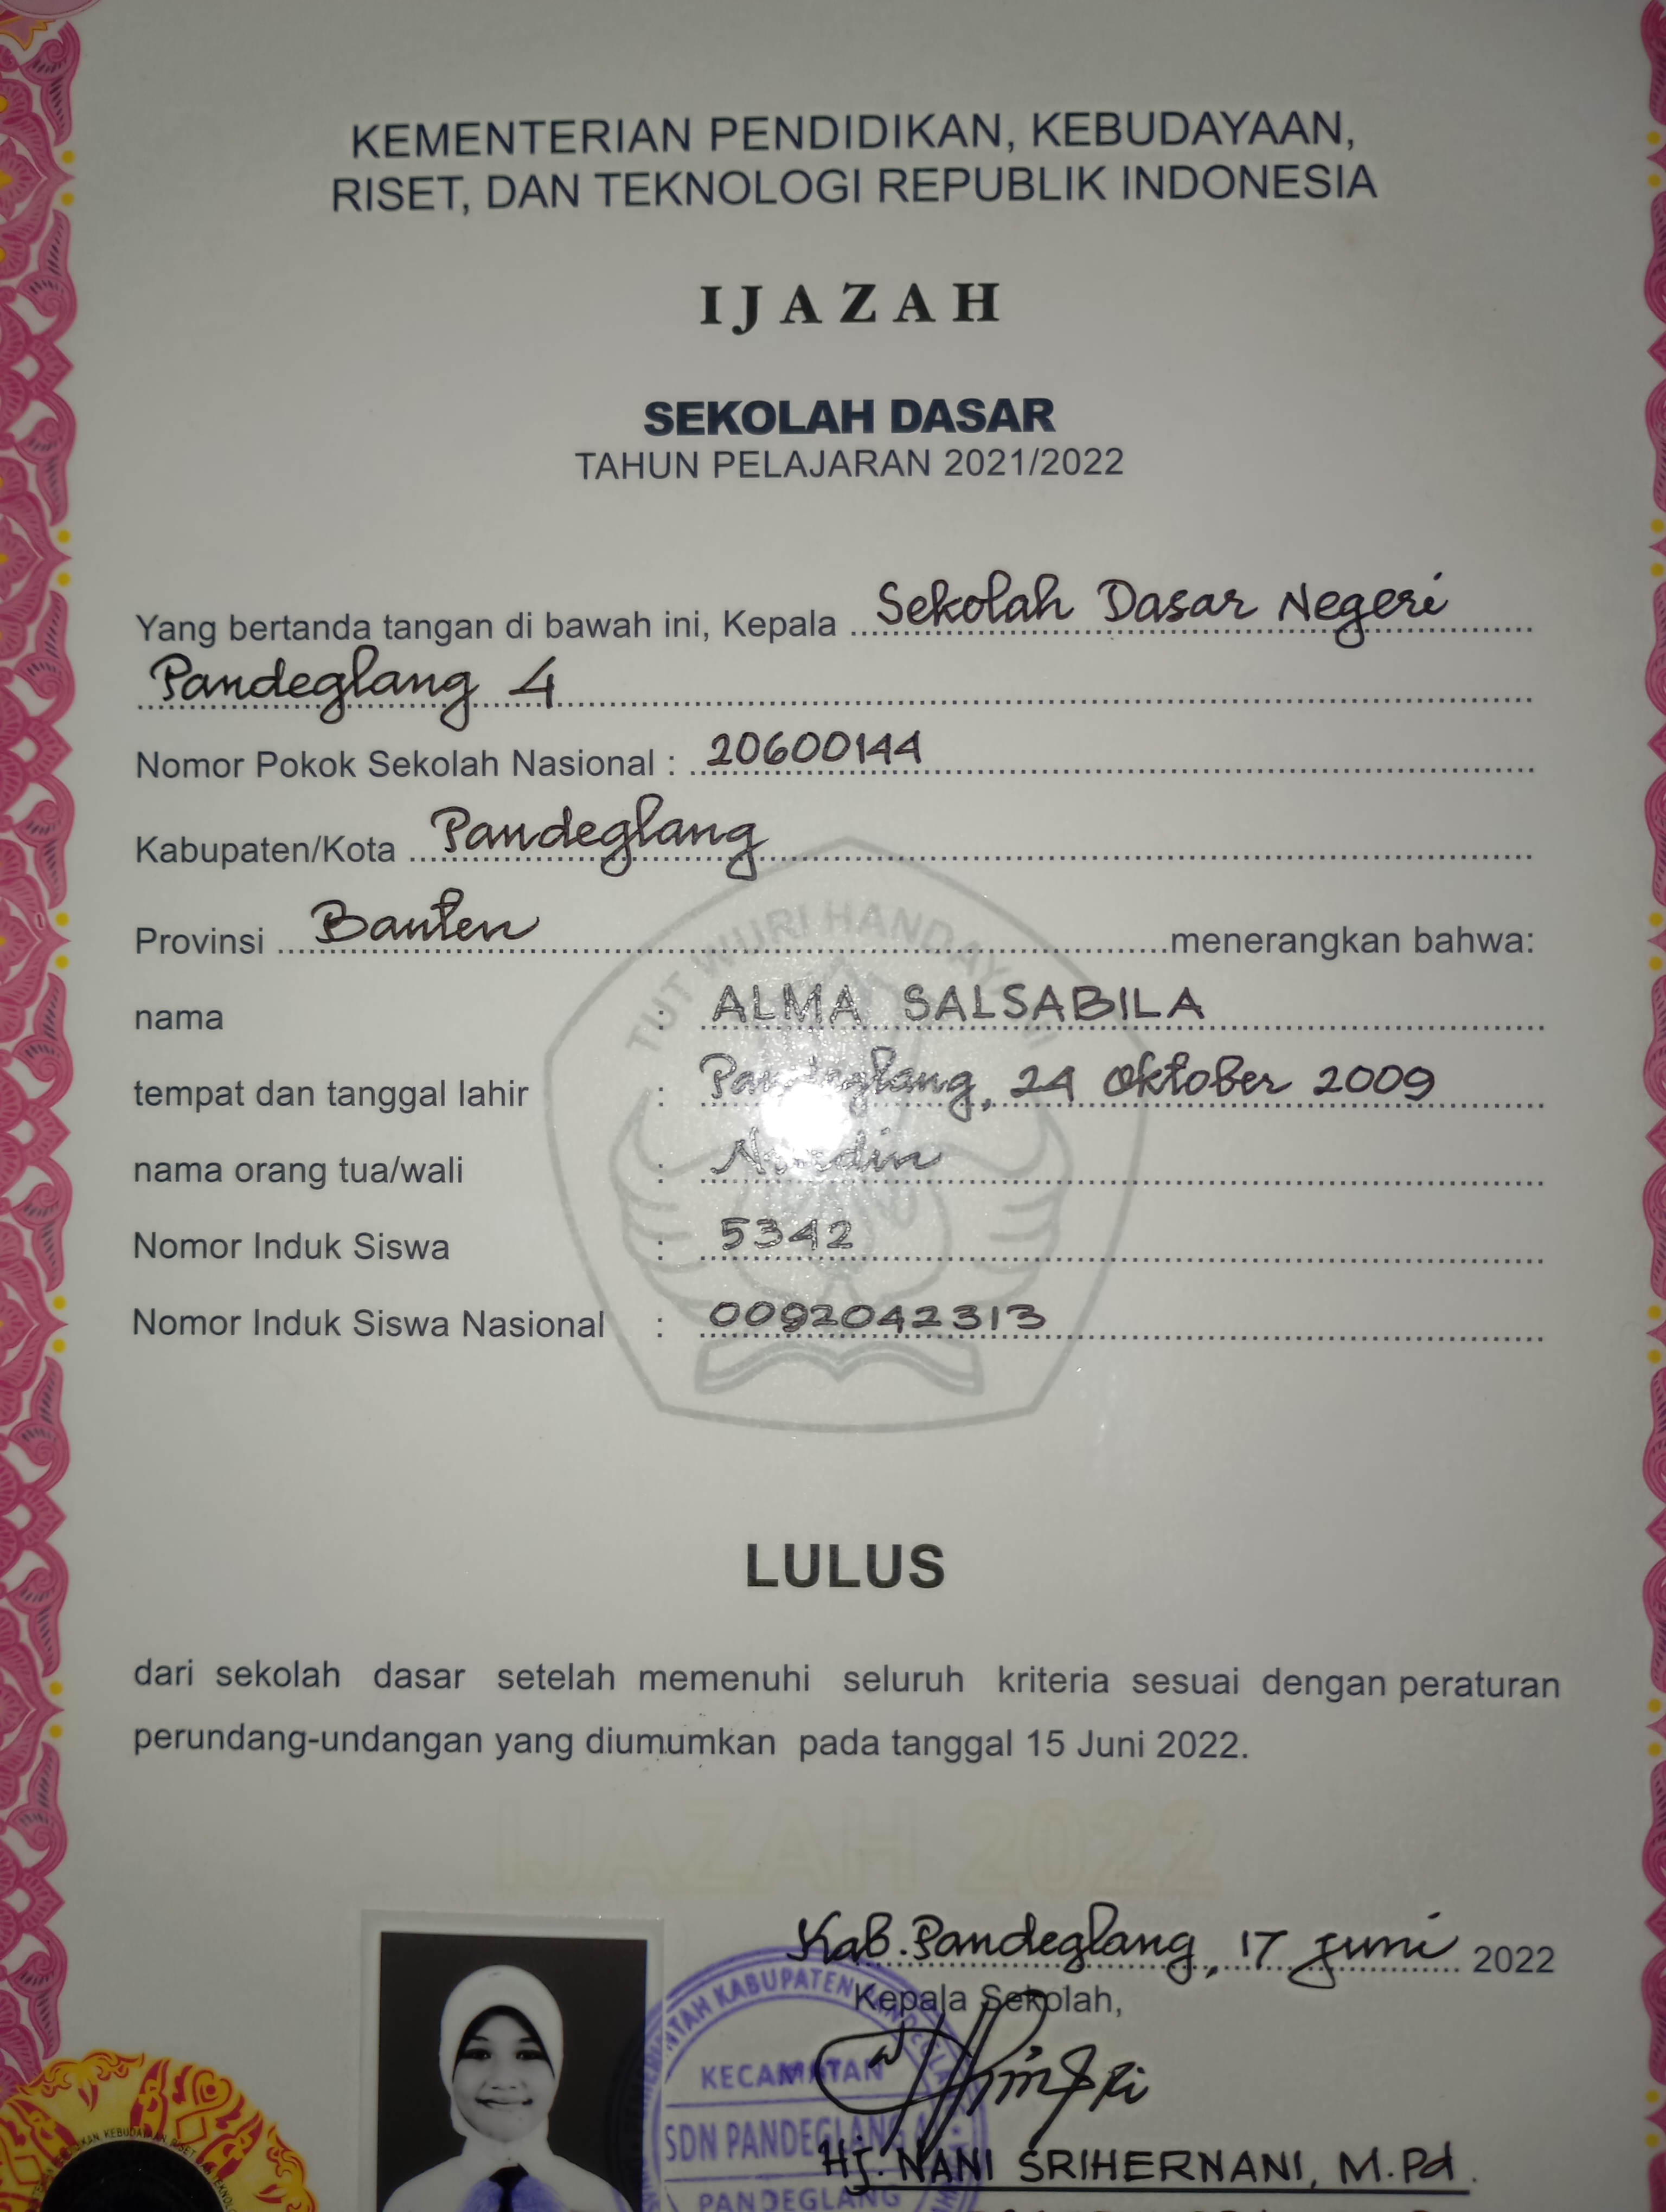 KEMENTERIAN PENDIDIKAN, KEBUDAYAAN,
RISET, DAN TEKNOLOGI REPUBLIK INDONESIA
IJAZAH
SEKOLAH DASAR
TAHUN PELAJARAN 2021/2022
Yang bertanda tangan di bawah ini, Kepala Sekolah Dasar Negeri
Pandeglang 4
Nomor Pokok Sekolah Nasional : 20600144
Kabupaten/Kota Pandeglang
Provinsi Banten menerangkan bahwa:
TUT WURI HANDAYANI
nama : ALMA SALSABILA
tempat dan tanggal lahir : Pandeglang, 24 Oktober 2009
nama orang tua/wali :
Nomor Induk Siswa : 5342
Nomor Induk Siswa Nasional : 0092042313
LULUS
dari sekolah dasar setelah memenuhi seluruh kriteria sesuai dengan peraturan
perundang-undangan yang diumumkan pada tanggal 15 Juni 2022.
IJAZAH 2022
Kab. Pandeglang, 17 Juni 2022
Kepala Sekolah,
KABUPATEN
KECAMATAN
SDN PANDEGLANG
PANDEGLANG
Hj. NANI SRIHERNANI, M.Pd.